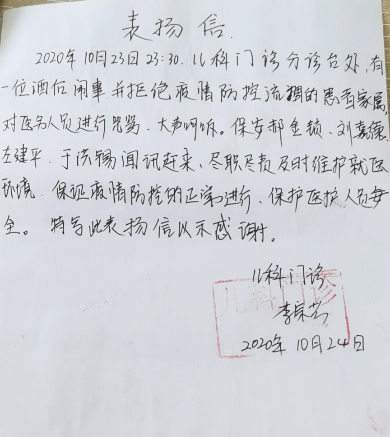 表扬信
2020年10月23日23:30.儿科门诊分诊台处,有
一位酒后闹事并拒绝疫情防控流调的患者家属,
对医务人员进行咒骂、大声呵斥。保安郝金锁、刘嘉
左建平、于洪畅闻讯赶来、尽职尽责及时维护就医
环境、保证疫情防控的正常进行、保护医护人员安
全。特写此表扬信以示感谢。
儿科门诊
儿科门诊
李
2020年10月24日